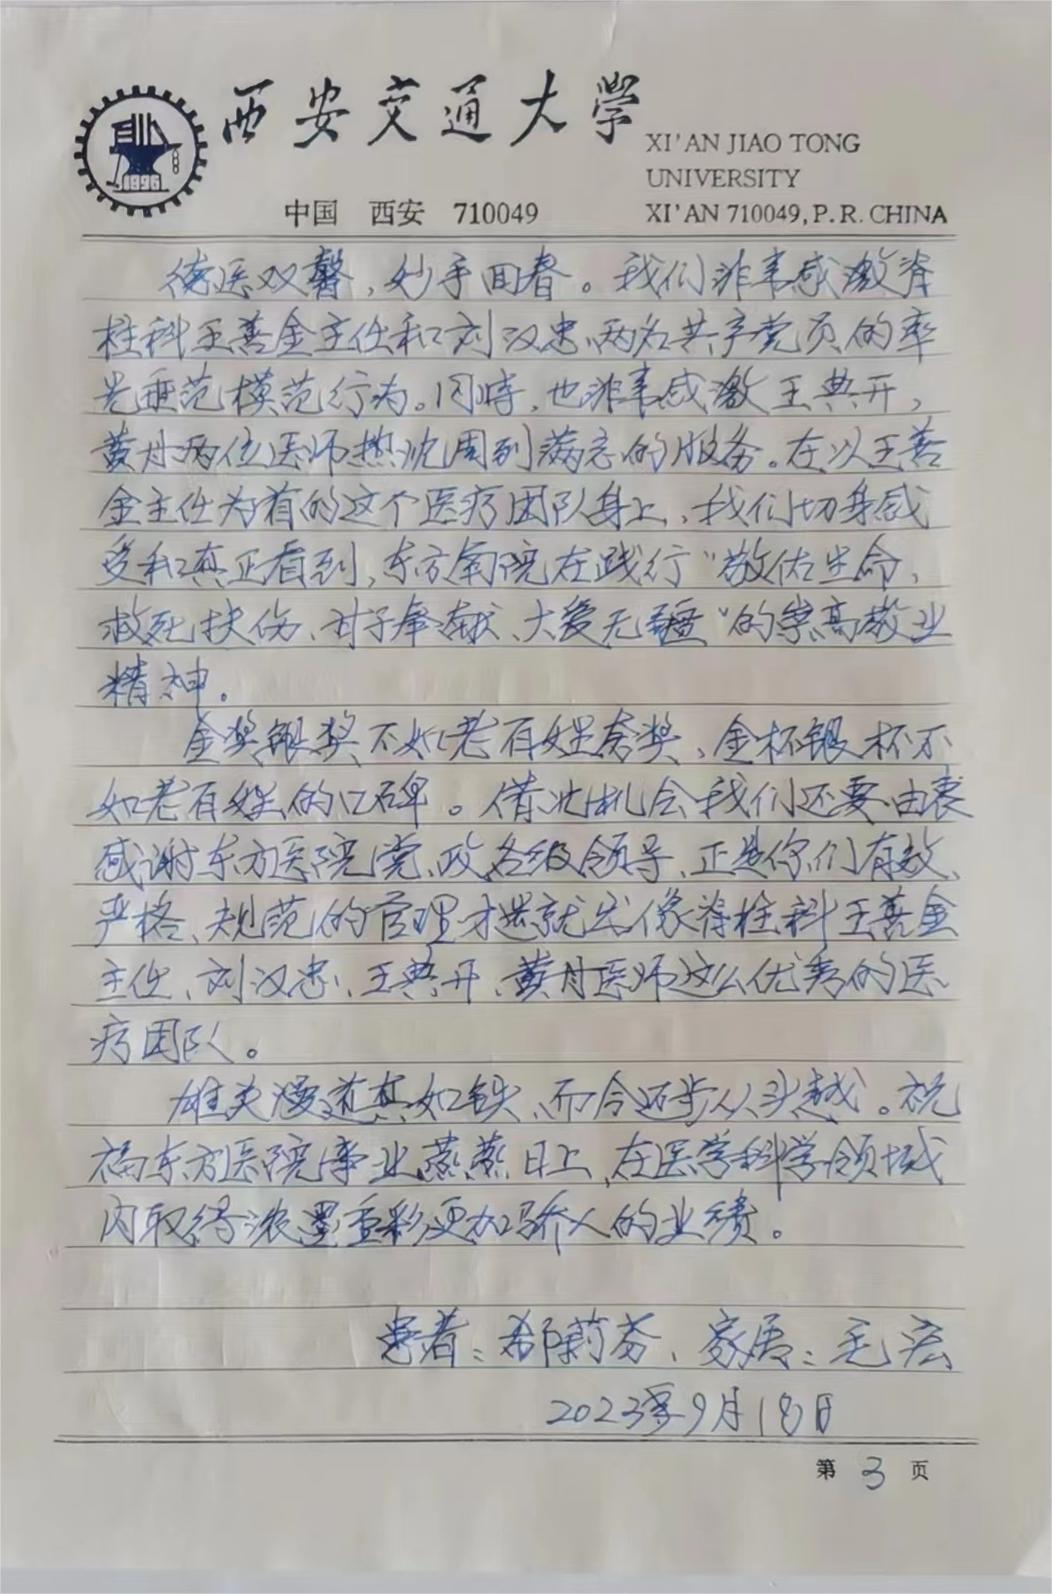 西安交通大学
XI'AN JIAO TONG
UNIVERSITY
中国 西安 710049
XI'AN 710049, P.R. CHINA
1896
德医双馨,妙手回春。我们非常感激脊
柱科王善金主任和刘汉忠、两名共产党员的率
先垂范模范行为。同时,也非常感激王典开,
黄丹两位医师热忱周到满意的服务。在以王善
金主任为首的这个医疗团队身上,我们切身感
受和真正看到,东方医院在践行“敬佑生命、
救死扶伤、甘于奉献、大爱无疆”的崇高敬业
精神。
金奖银奖不如老百姓夸奖、金杯银杯不
如老百姓的口碑。借此机会我们还要由衷
感谢东方医院党、政各级领导、正是你们有效、
严格、规范的管理才造就出像脊柱科王善金
主任、刘汉忠、王典开、黄丹医师这么优秀的医
疗团队。
雄关漫道真如铁、而今迈步从头越。祝
福东方医院事业蒸蒸日上,在医学科学领域
内取得浓墨重彩更加骄人的业绩。
患者:郗莉芬、家属:毛宏
2023年9月18日
第 3 页